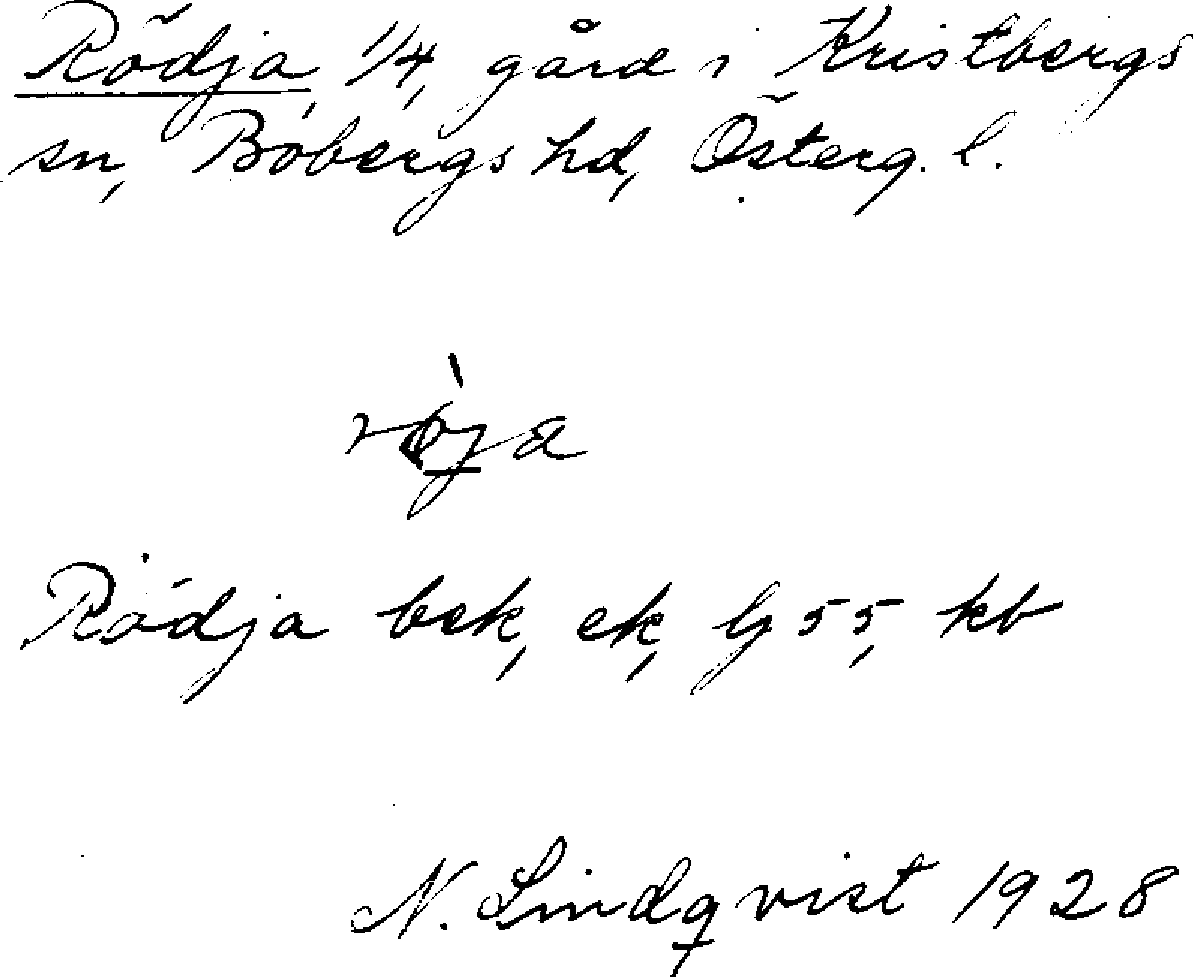 Rödja 1/4, gård i Kristbergs
sn, Bobergs hd, Österg. l.
Rödja bek, ek, Gj 55, kb
N. Lindqvist 1928